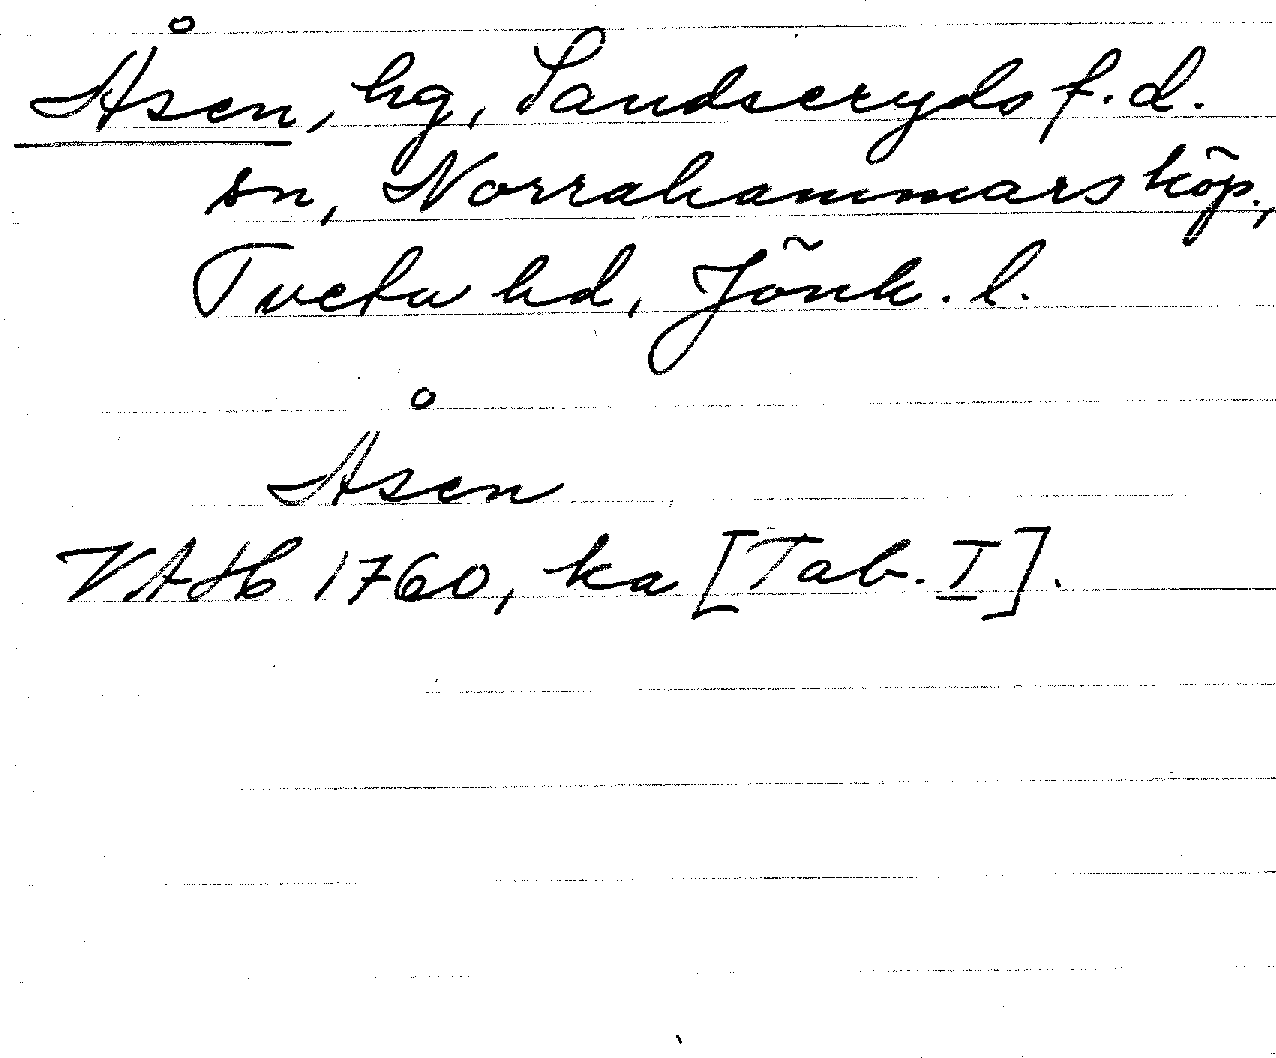 Åsen, hg, Sandseryds f.d.
sn, Norrahammars köp.,
Tveta hd, Jönk. l.
Åsen
VAH 1760, ka [Tab. I].